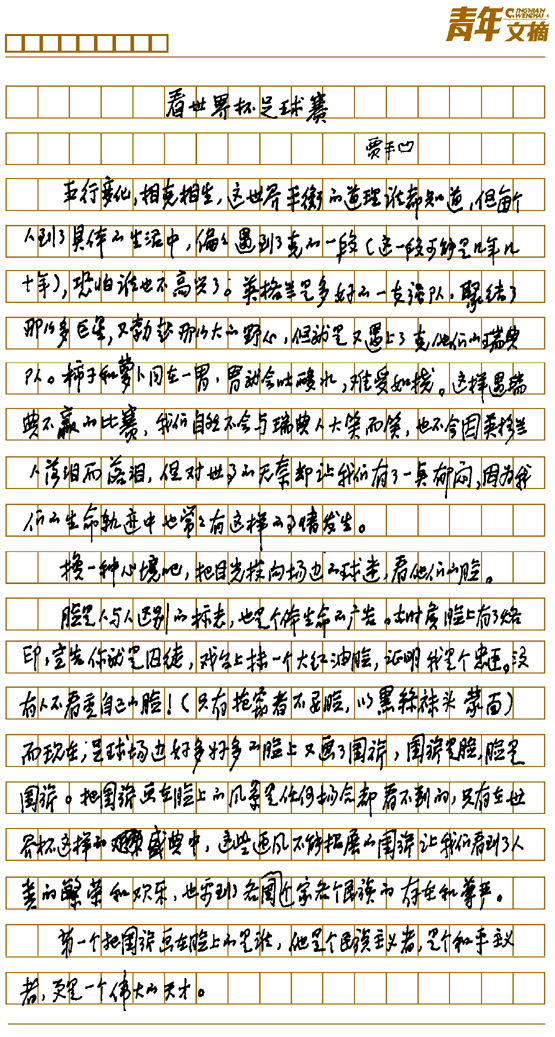 青年文摘
QINGNIAN WENZHAI
看世界杯足球赛
贾平凹
五行变化，相克相生，这世界平衡的道理谁都知道，但每个
人到了具体的生活中，偏偏遇到了克的一段（这一段或许是几年几
十年），恐怕谁也不高兴了。英格兰是多好的一支强队，聚结了
那么多巨星，又勃勃那么大的野心，但就是又遇上了克他们的瑞典
队。柿子和萝卜同在一胃，胃就会吐酸水，难受如挠。这样遇瑞
典不赢的比赛，我们自然不会与瑞典人大笑而笑，也不会因英格兰
人落泪而落泪，但对世事的无奈却让我们有了一具郁闷，因为我
们的生命轨迹中也常常有这样的事情发生。
换一种心境吧，把目光投向场边的球迷，看他们的脸。
脸是人与人区别的标志，也是个体生命的广告。古时候脸上有了烙
印，宣告你就是囚徒，戏台上抹一个大红油脸，证明我是个忠臣。没
有人不看重自己的脸！（只有抢家者不要脸，以黑丝袜头蒙面）
而现在，足球场边好多好多的脸上又画了国旗，国旗是脸，脸是
国旗。把国旗画在脸上的风景是任何场合都看不到的，只有在世
界杯这样的盛典中，这些迎风不能招展的国旗让我们看到了人
类的繁荣和欢乐，也看到了各国家各个民族的存在和尊严。
第一个把国旗画在脸上的是谁，他是个民族主义者，是个和平主义
者，更是一个伟大的天才。